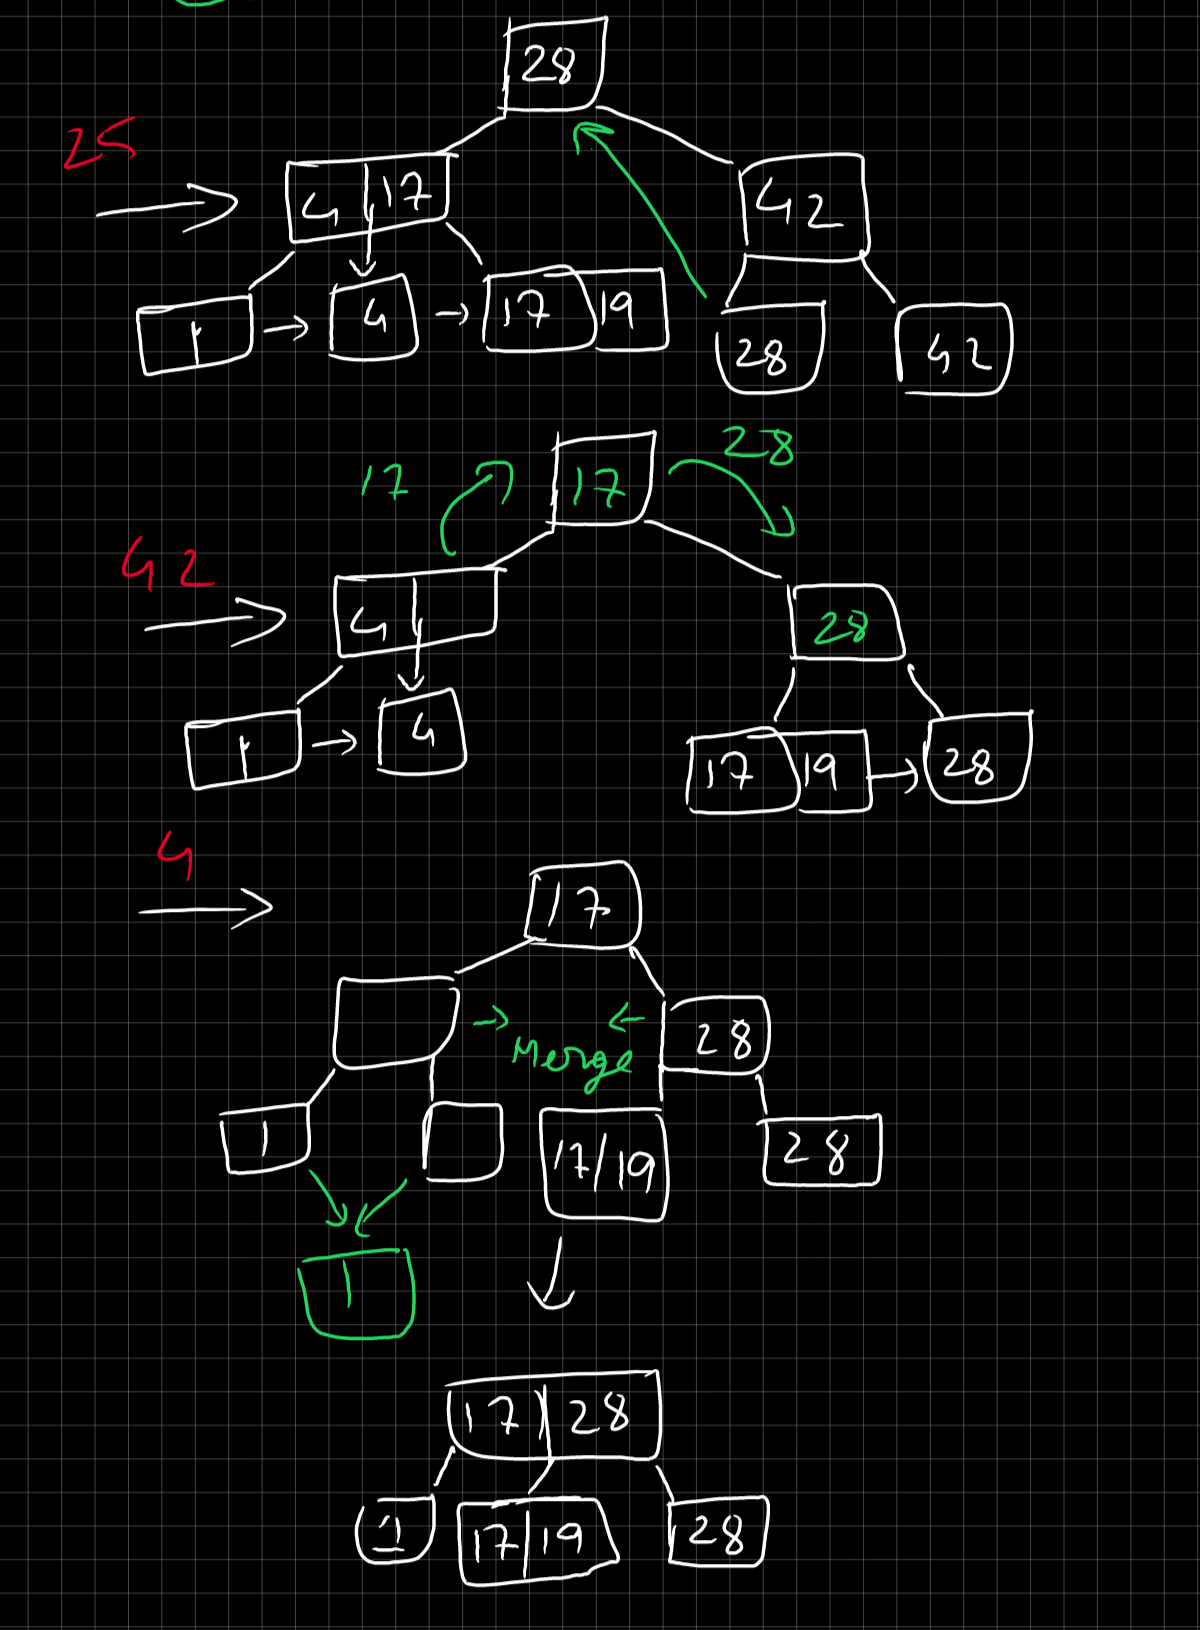 28
25
4 17
42
1 4 17 19
28 42
28
17 17
42
4
28
1 4
17 19 28
4
17
28
Merge
1 17/19 28
1
17 28
1 17 19 28